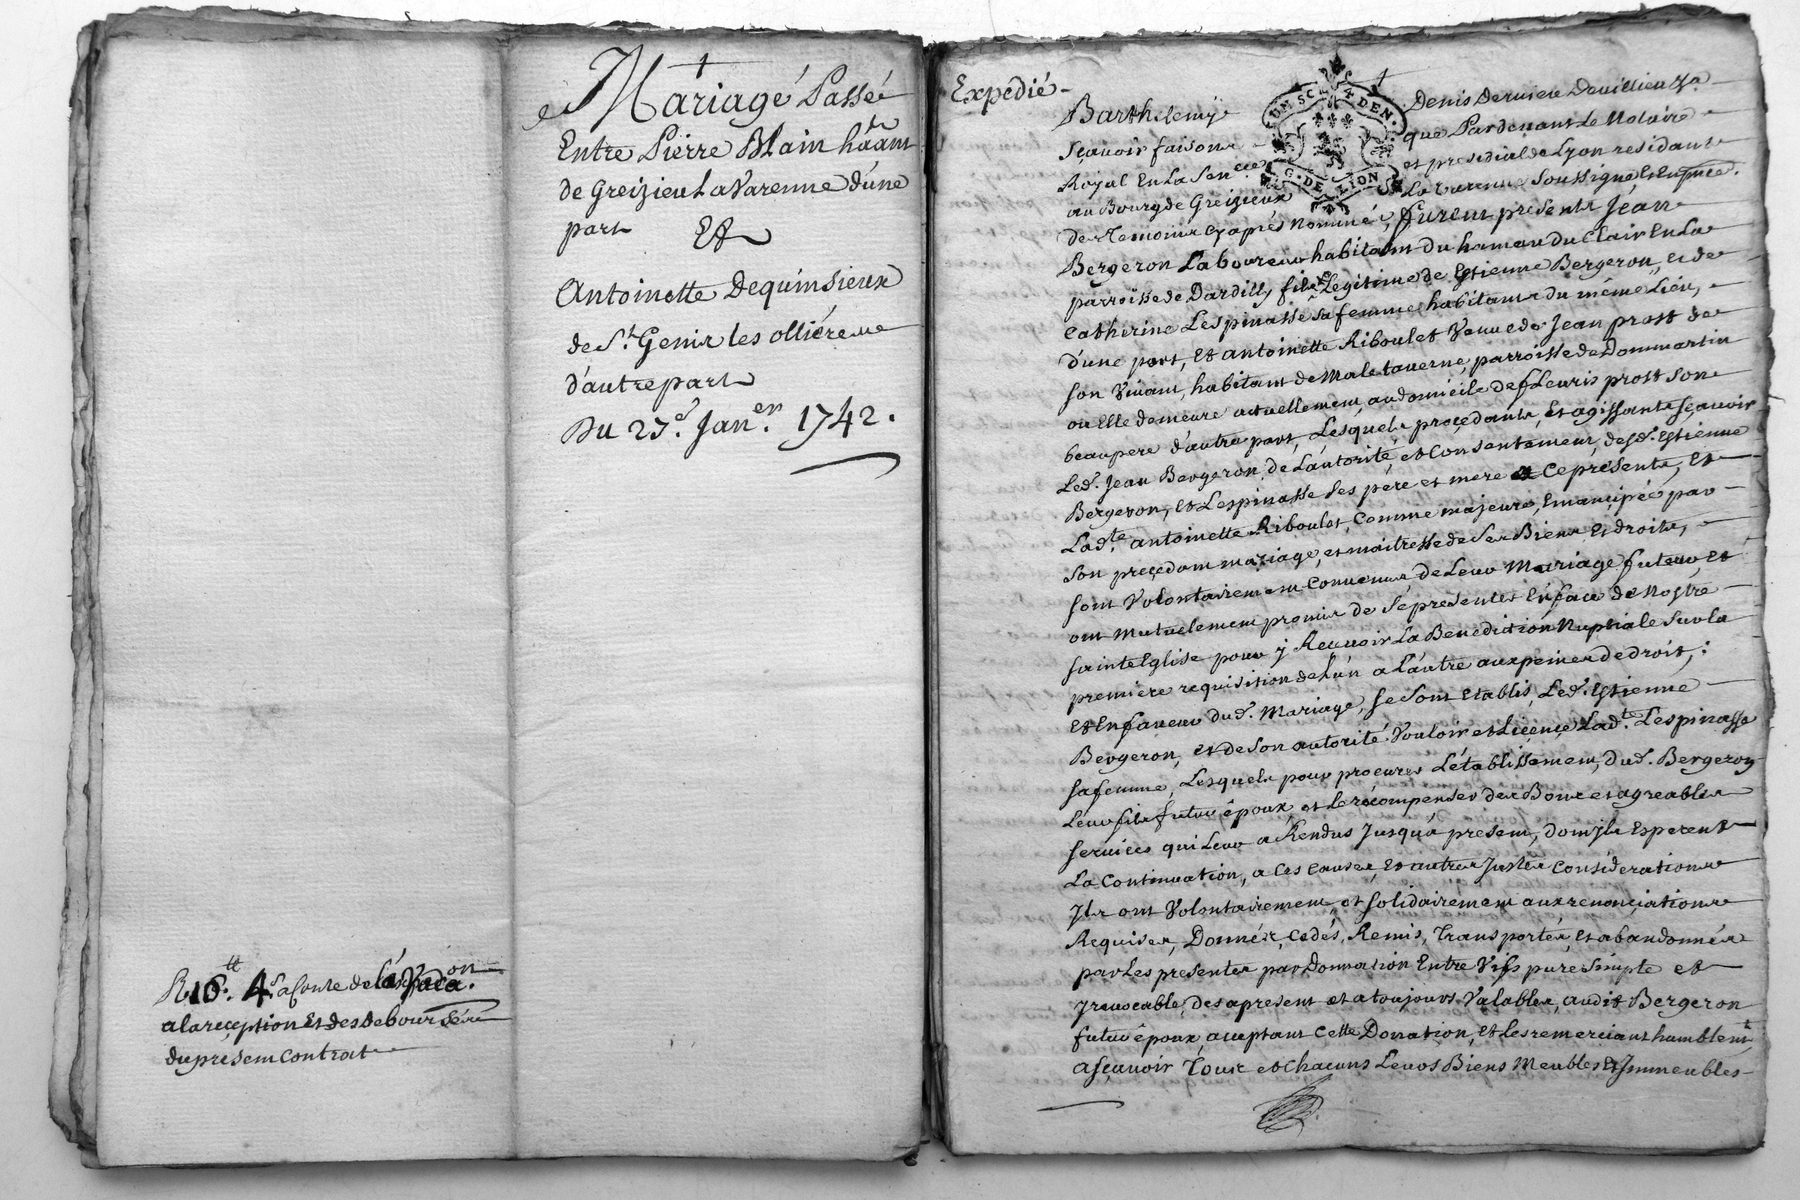 Mariagé Passé
Entre Pierre Blain hãant
de Greizieu La Varenne d'une
part Et
Antoinette Dequinsieux
de St. Genis les ollieres
d'autre part
Du 27e. Janer. 1742.
R 16tt. 4s. a conte de
a la reception Et des debourséz
du present contrat
Expedié
UN SOL 4 DEN.
G. DE LION
Barthelemÿ Denis Dervieu Devillieu
Sçavoir faisons que Pardevant Le Notaire
Royal En La Senccée et presidial de Lyon residant
au Bourg de Greizieux La Varenne Soussigné Et En
des temoins cy après Nommés, furent presents Jean
Bergeron Laboureur habitant du hameau du Clair En La
parroisse de Dardilly fils Legitime de Estienne Bergeron, et de
Catherine Lespinasse sa femme habitants du même Lieu,
d'une part, Et antoinette Riboulet Veuve de Jean prost de
son Vivant, habitant de Maletaverne, parroisse de Dommartin
ou Elle demeure actuellement, au domicile de fleuris prost son
beaupere d'autre part, Lesquels procedants, et agissants sçavoir
Led. Jean Bergeron de L'autorité et Consentement, desd. Estienne
Bergeron, et Lespinasse ses père et mere a ce présents, Et
Ladte. antoinette Riboulet, Comme majeure, Emancipée par
son preçedant mariage, et maitresse de ses Biens Et droits,
sont Volontairement Convenus de Leur Mariage futeur, et
ont mutuelement promis de se presenter En face de Nostre
sainte Eglise pour y Recevoir La Benediction Nuptiale sur la
premiere requisition de L'un a L'autre aux peines de droit;
Et En faveur dud. Mariage, se sont Etablis, Led. Estienne
Bergeron, et de son autorité Vouloir et Liçençe Ladte. Lespinasse
sa femme, Lesquels pour procurer L'établissement, dud. Bergeron
Leur fils futur époux, et Le récompenser des Bons et agreables
services qui Leur a Rendus Jusqu'à present, dont jls Esperent
La Continuation, a Ces Causes, Et autres Justes Considerations
Jls ont Volontairement, et solidairement aux renonçiations
Requises, Donnés, Cedés, Remis, Transportés, et abandonnés
par Les presentes par Donnation Entre Vifs pure simple et
jrrevocable, des apresent et a toujours Valables, audit Bergeron
futur époux, aceptant Cette Donation, Et Les remerciant humblemt
a sçavoir Tous et Chacuns Leurs Biens Meubles Et Jmmeubles